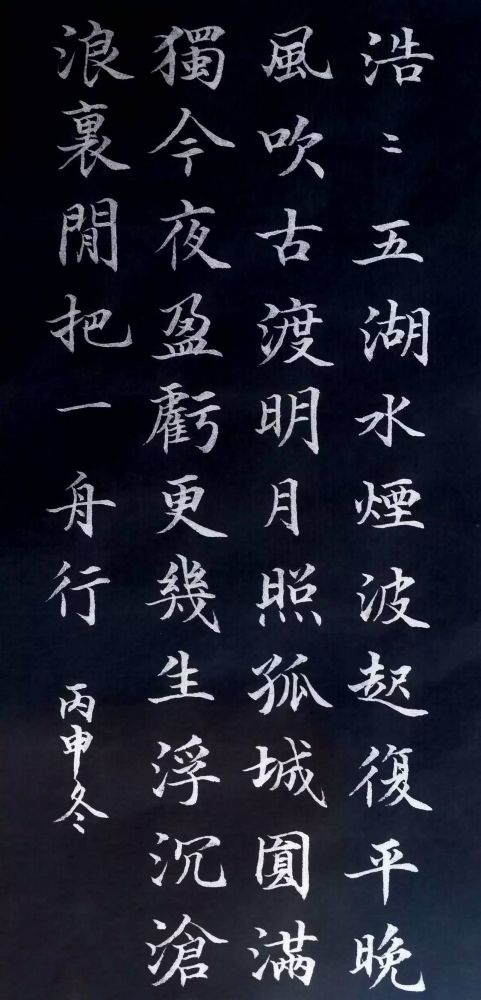 浩〻五湖水煙波起復平晚
風吹古渡明月照孤城圓滿
獨今夜盈虧更幾生浮沉滄
浪裏閒把一舟行
丙申冬